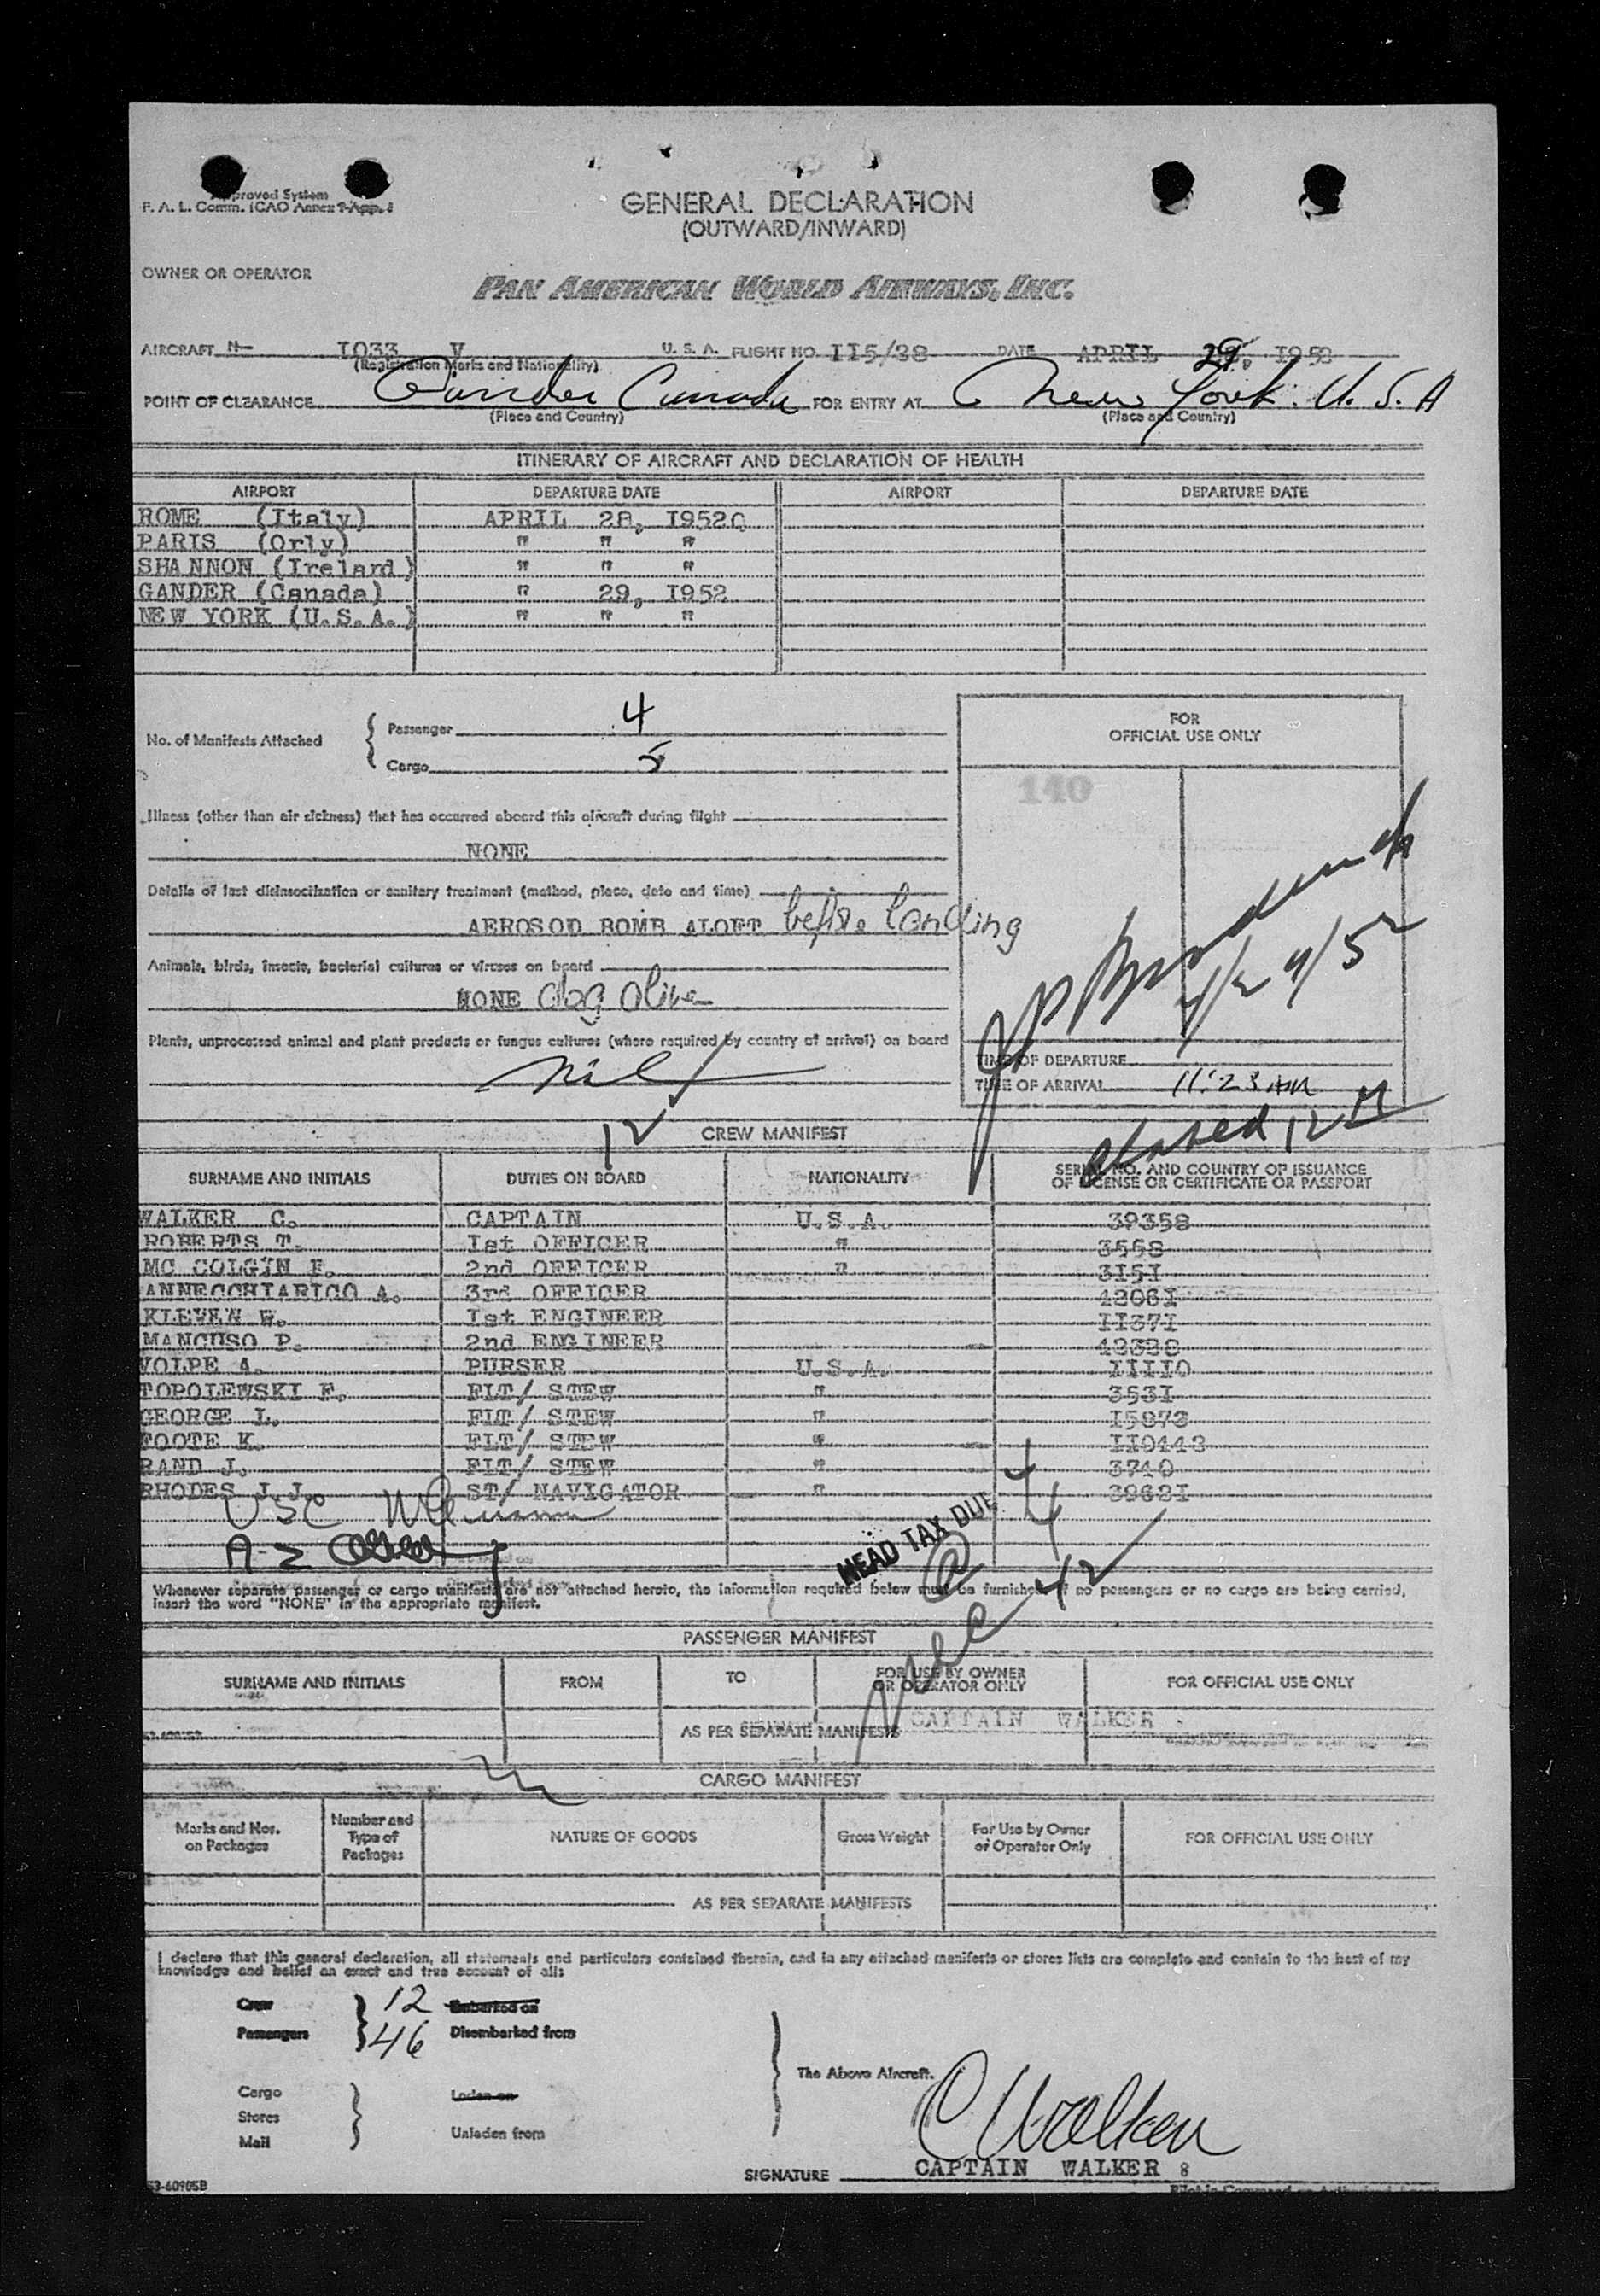 Approved System
F. A. L. Comm. ICAO Annex 9-App. 1
GENERAL DECLARATION
(OUTWARD/INWARD)
OWNER OR OPERATOR
PAN AMERICAN WORLD AIRWAYS, INC.
AIRCRAFT N- I033 V U. S. A. FLIGHT NO. II5/38 DATE APRIL 29, I952
(Registration Marks and Nationality)
POINT OF CLEARANCE Gander Canada FOR ENTRY AT New York. U. S. A
(Place and Country) (Place and Country)
ITINERARY OF AIRCRAFT AND DECLARATION OF HEALTH
AIRPORT DEPARTURE DATE AIRPORT DEPARTURE DATE
ROME (Italy) APRIL 28, I952
PARIS (Orly) " " "
SHANNON (Ireland) " " "
GANDER (Canada) " 29, I952
NEW YORK (U.S.A.) " " "
No. of Manifests Attached
Passenger 4
Cargo 5
FOR
OFFICIAL USE ONLY
140
Illness (other than air sickness) that has occurred aboard this aircraft during flight
NONE
Details of last disinsectization or sanitary treatment (method, place, date and time)
AEROSOD BOMB ALOFT before landing
Animals, birds, insects, bacterial cultures or viruses on board
NONE dog alive
4/29/52
Plants, unprocessed animal and plant products or fungus cultures (where required by country of arrival) on board
nil
TIME OF DEPARTURE
TIME OF ARRIVAL 11:23 AM
12
CREW MANIFEST
SURNAME AND INITIALS DUTIES ON BOARD NATIONALITY SERIAL NO. AND COUNTRY OF ISSUANCE
OF LICENSE OR CERTIFICATE OR PASSPORT
WALKER C. CAPTAIN U.S.A. 39358
ROBERTS T. Ist OFFICER " 3558
MC COLGIN F. 2nd OFFICER " 3I5I
ANNECCHIARICO A. 3rd OFFICER 4206I
KLEVEN W. Ist ENGINEER II37I
MANCUSO P. 2nd ENGINEER 42328
VOLPE A. PURSER U.S.A. IIII0
TOPOLEWSKI F. FLT/ STEW " 353I
GEORGE L. FLT/ STEW " I5873
TOOTE K. FLT/ STEW " II0443
RAND J. FLT/ STEW " 3740
RHODES J.J. ST/ NAVIGATOR " 3962I
USC
HEAD TAX DUE 4
42
Whenever separate passenger or cargo manifests are not attached hereto, the information required below must be furnished. If no passengers or no cargo are being carried,
insert the word "NONE" in the appropriate manifest.
PASSENGER MANIFEST
SURNAME AND INITIALS FROM TO FOR USE BY OWNER
OR OPERATOR ONLY FOR OFFICIAL USE ONLY
CAPTAIN WALKER
AS PER SEPARATE MANIFESTS
CARGO MANIFEST
Marks and Nos.
on Packages
Number and
Type of
Packages
NATURE OF GOODS
Gross Weight
For Use by Owner
or Operator Only
FOR OFFICIAL USE ONLY
AS PER SEPARATE MANIFESTS
I declare that this general declaration, all statements and particulars contained therein, and in any attached manifests or stores lists are complete and contain to the best of my
knowledge and belief an exact and true account of all:
Crew 12 Embarked on
Passengers 46 Disembarked from
The Above Aircraft.
Cargo Laden on
Stores
Mail Unladen from
C Walker
SIGNATURE CAPTAIN WALKER 8
53-60905B